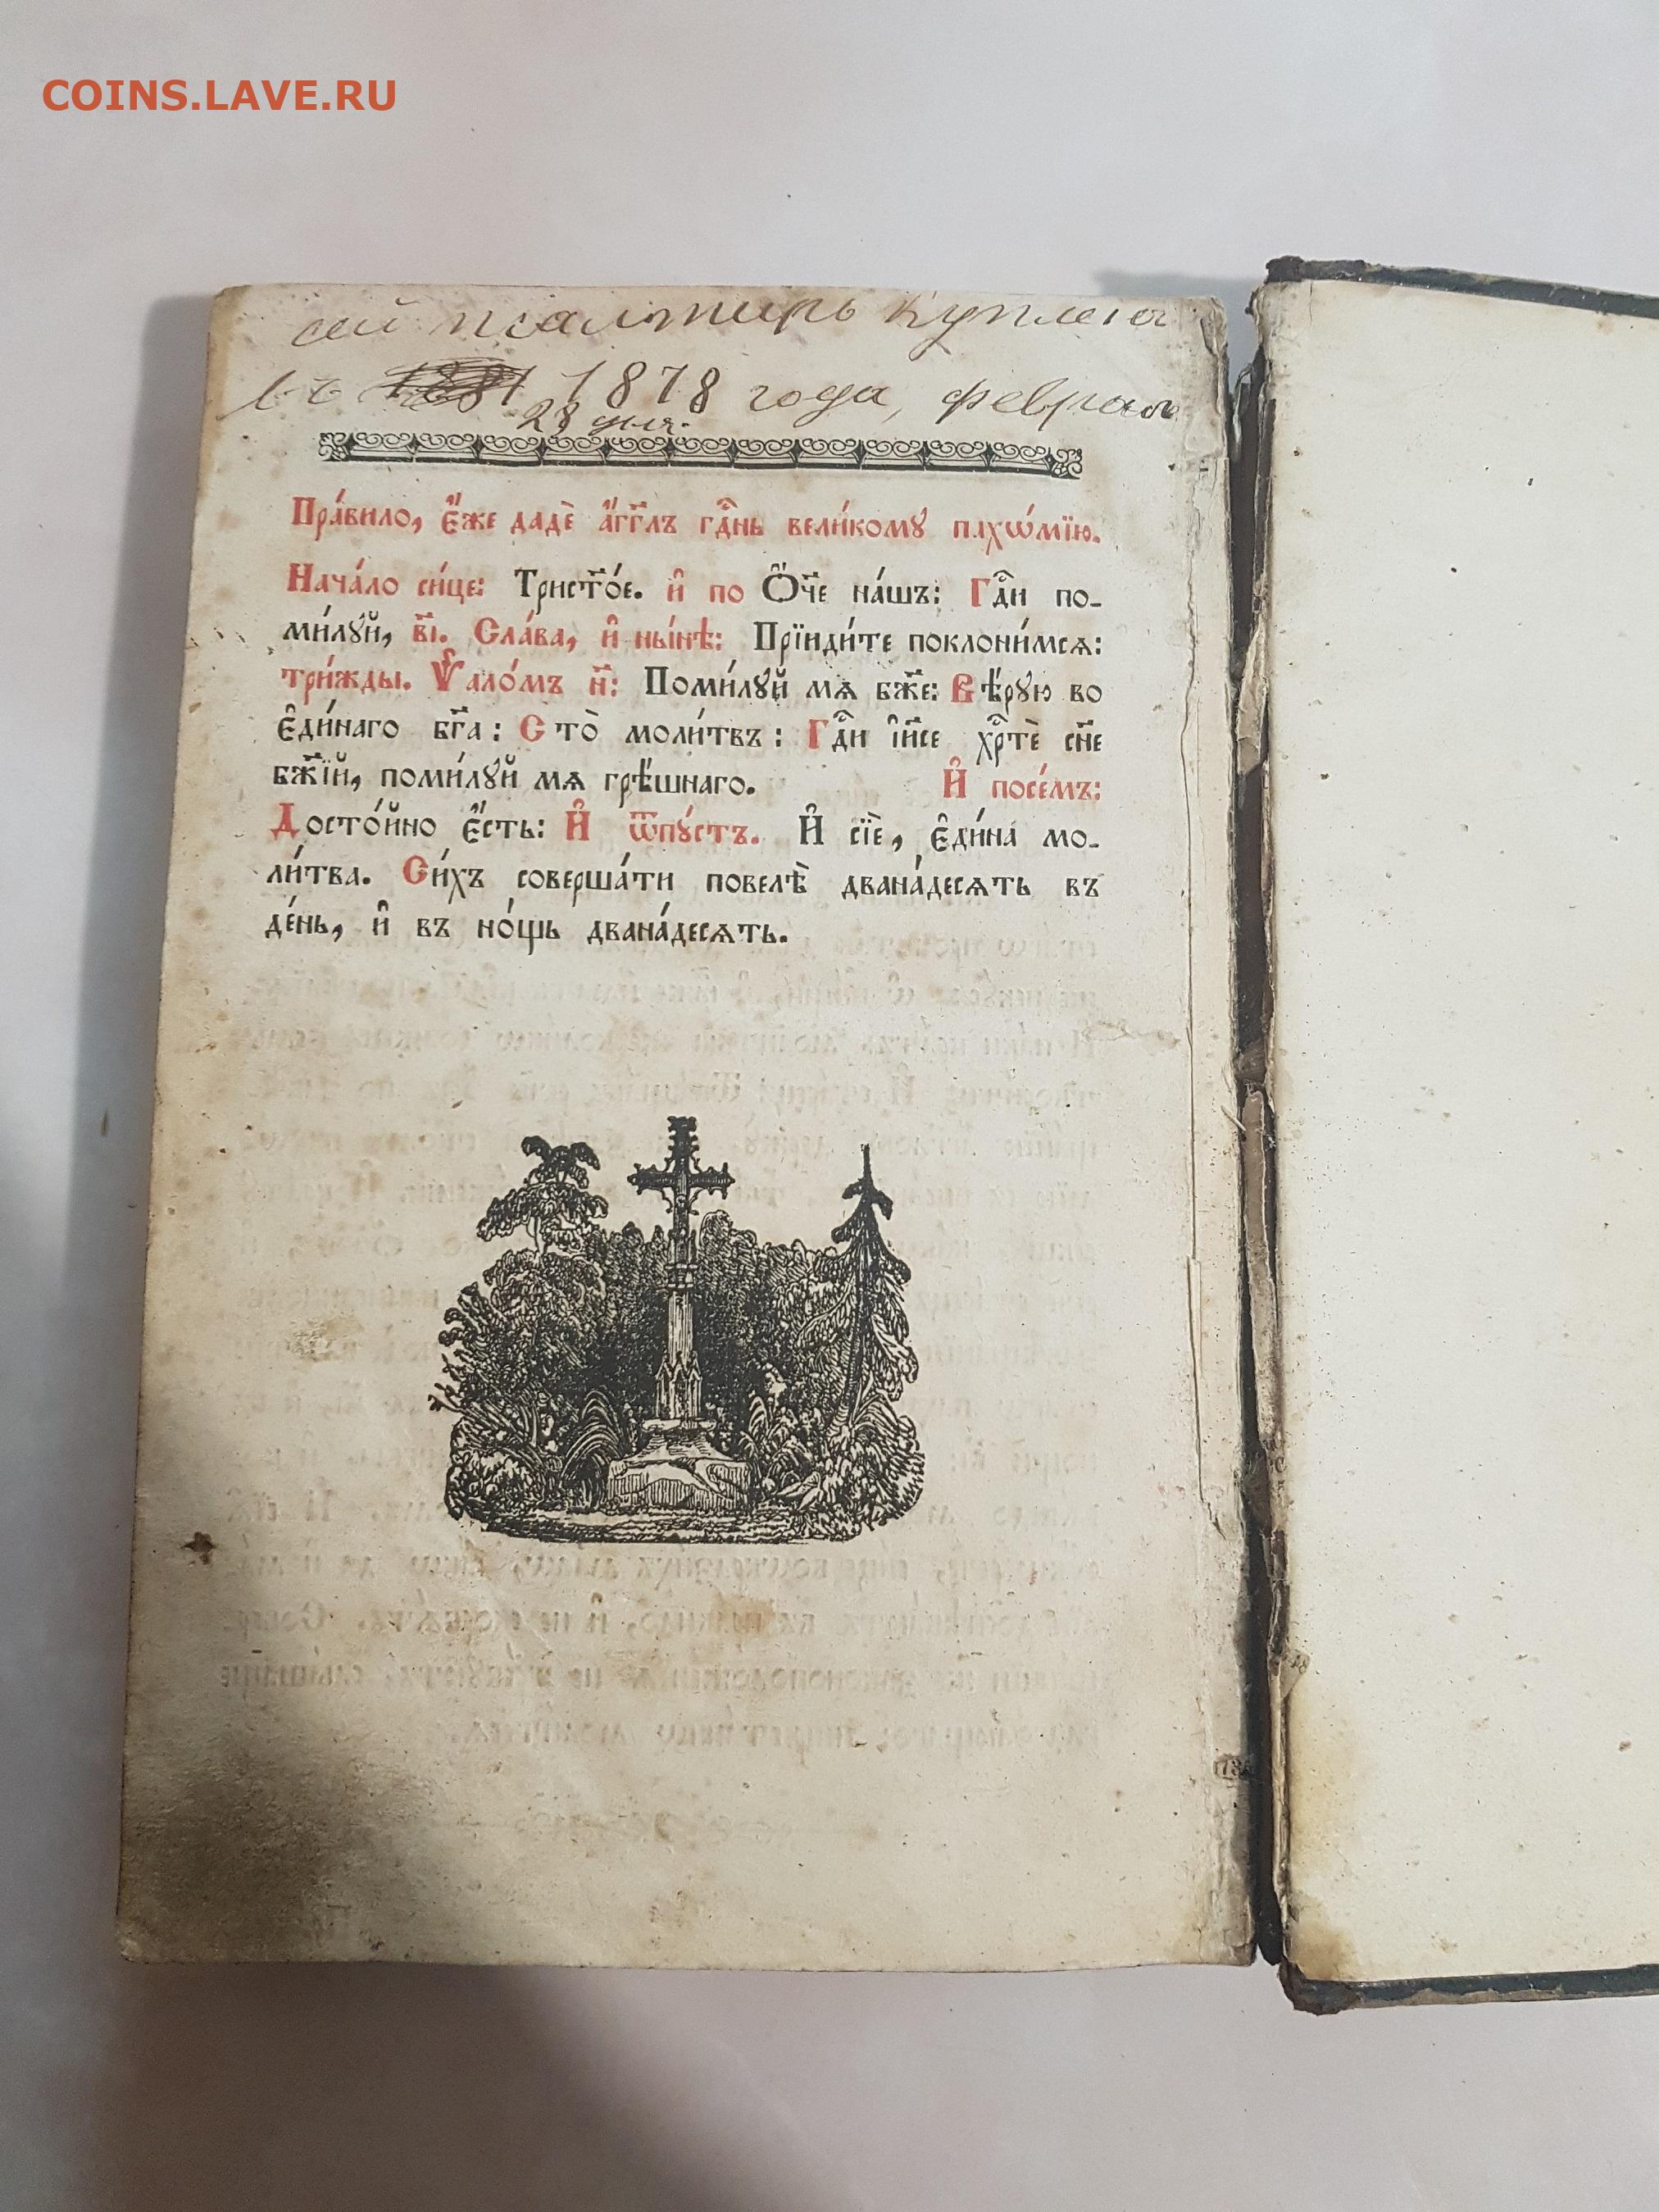 COINS.LAVE.RU
сей псалтирь куплена
въ 1878 года, февраля
28 дня.
Пра́вило, є҆́же дадѐ а҆́гг҃лъ гдⷭ҇нь вели́кому пахѡ́мїю.
Нача́ло си́це: Трист҃о́е. и҆ по Ѻ҆́ч҃е на́шъ: Гдⷭ҇и по-
ми́лꙋй, в҃і. Сла́ва, и҆ ны́нѣ: Прїиди́те поклони́мсѧ:
три́жды. Ѱало́мъ н҃: Поми́лꙋй мѧ бж҃е: Вѣ́рꙋю во
є҆ди́наго бг҃а: Сто̀ моли́твъ: Гдⷭ҇и і҆и҃се хрⷭ҇тѐ сн҃е
бж҃їй, поми́лꙋй мѧ грѣ́шнаго. И҆ посе́мъ:
Досто́йно є҆́сть: И҆ ѿпꙋ́стъ. И҆ сїѐ, є҆ди́на мо-
ли́тва. Си́хъ соверша́ти повелѣ̀ двана́десѧть въ
де́нь, и҆ въ но́щь двана́десѧть.